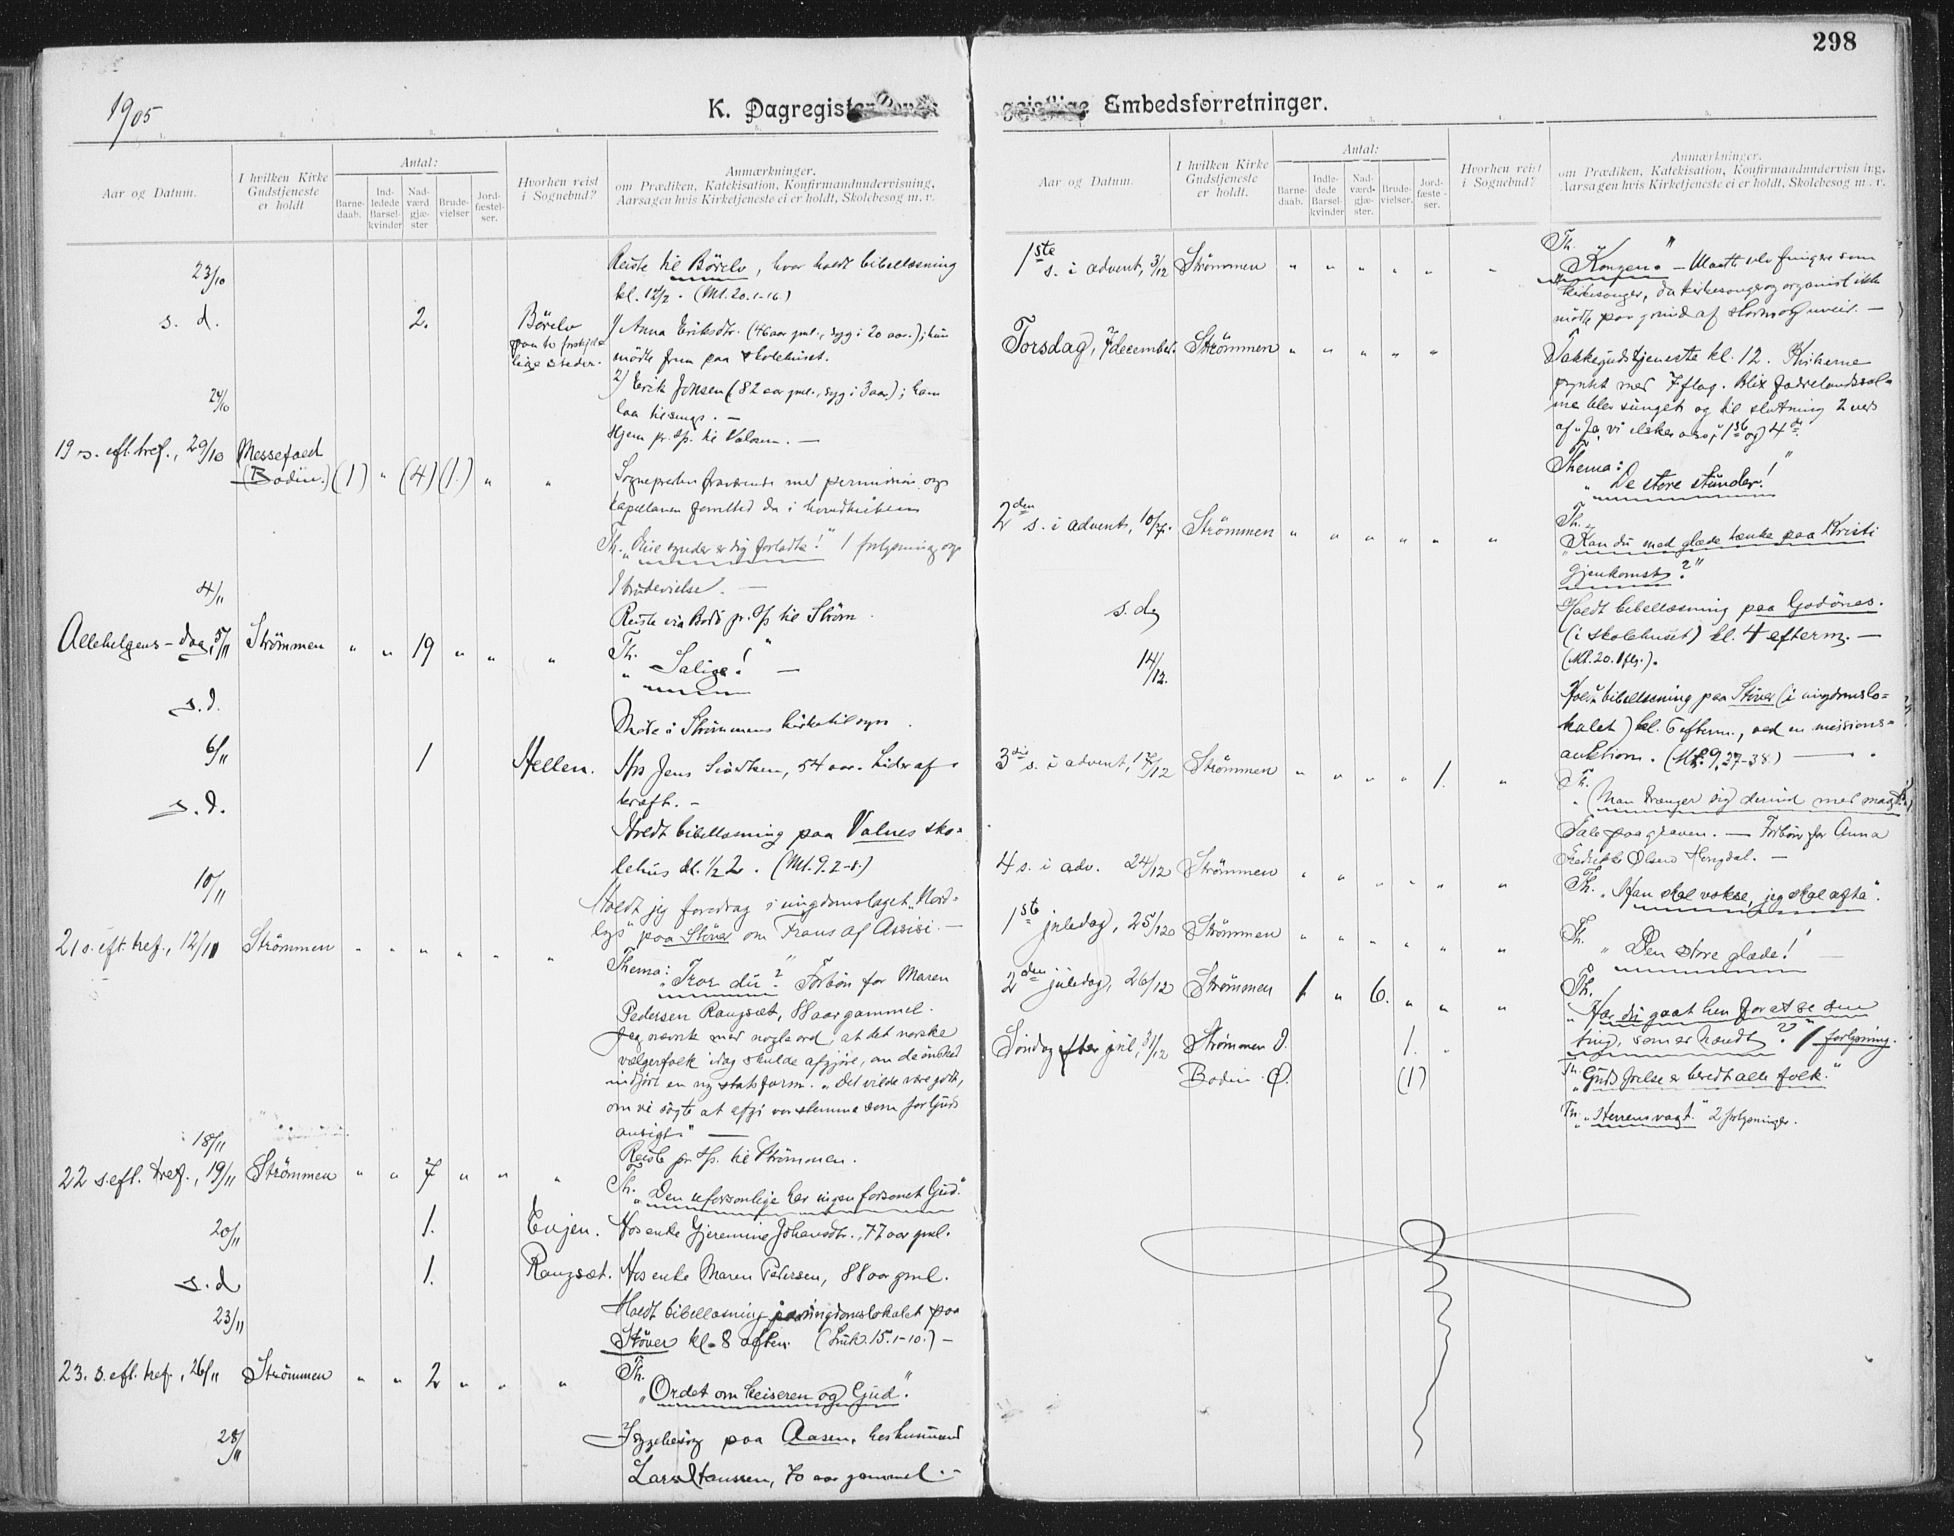 298
1905
K. Dagregister
Embedsforretninger.
1. 2. 3. 4. 5.
Aar og Datum.
I hvilken Kirke Gudstjeneste er holdt
Antal:
Barne-daab.
Ind-ledede Barsel-kvinder
Nad-værd gjæ-ster
Brude-vielser
Jord-fæstel-ser.
Hvorhen reist i Sognebud?
Anmærkninger.
om Prædiken, Katekisation, Konfirmandundervisning,
Aarsagen hvis Kirketjeneste ei er holdt, Skolebesøg m. v.
23/10 Reiste til Börelv, hvor holdt bibellæsning
kl. 12½. (Mt. 20.1-16)
s. d. 2. Börelv 1) Anna Eriksdtr. (46 aar gml., syg i 20 aar.); hun
paa to forskjel-
lige steder. mödte frem paa skolehuset.
2) Erik Johsen (82 aar gml., syg i 3 aar); han
24/10 laa tilsengs. —
Hjem pr. til Valosen. —
19 s. eft. tref., 29/10 Messefald
(Bodin.) (1) " (4) (1.) " " Sognepresten fraværende med permission og
kapellanen forretted da i hovedkirken
Th. "Dine synder er dig forladte!" 1 forlysning og
1 brudevielse. —
4/11 Reiste via Bodö pr. til Ström.
Allehelgens-dag, 5/11 Strömmen " " 19 " " " Th. "Salige!" —
s. d. Möde i Strömmens kirketilsyn.
6/11 1 Hellen. Hos Jens 54 aar. Lider af
kræft. —
s. d. Holdt bibellæsning paa Valnes sko-
lehus kl. ½2. (Mt. 9.2-8)
10/11 Holdt jeg foredrag i ungdomslaget "Nord-
lys" paa Stöver om Frans af Assisi. —
21 s. eft. tref., 12/11 Strömmen " " " " " " Thema: "Tror du?" Forbön for Maren
Pedersen Rangsæt, 88 aar gammel.
Jeg nævnte med nogle ord, at det norske
vælgerfolk idag skulde afgjöre, om de önsked
indfört en ny statsform. "Det vilde være godt,
om vi sögte at afgi vor stemme som for Guds
ansigt." —
18/11 Reiste pr. til Strömmen.
22 s. eft. tref., 19/11 Strömmen " " 7 " " " Th. "Den uforsonlige har ingen forsonet Gud."
20/11 1. Evjen. Hos enke Gjeremine Johansdtr., 77 aar gml.
s. d 1. Rangsæt. Hos enke Maren Pedersen, 88 aar gml.
23/11 Holdt bibellæsning ungdomslokalet paa
Stöver kl. 8 aften. (Luk. 15.1-10.) —
23. s. eft. tref., 26/11 Strömmen " " 2 " " " Th. "Ordet om keiseren og Gud".
28/11 Sygebesög paa Aasen, hos
Lars Hanssen, 70 aar gammel. —
Aar og Datum.
I hvilken Kirke Gudstjeneste er holdt.
Antal:
Barne-daab.
Indle-dede Barsel-kvinder
Nad-værd-gjæ-ster.
Brude-vielser.
Jord-fæste-ser.
Hvorhen reist i Sognebud?
Anmærkninger.
om Prædiken, Katekisation, Konfirmandundervisning,
Aarsagen hvis Kirketjeneste ei er holdt, Skolebesøg m. v.
1ste s. i advent, 3/12 Strömmen " " " " " " Th. "Kongen." — Maatte selv fungere som
kirkesanger, da kirkesanger og organist ikke
mödte paa grund af storm og uveir. —
Torsdag, 7 december. Strömmen " " " " " Takkegudstjeneste kl. 12. Kirkerne
pyntet med 7 flag. Blix fædrelandssal-
me blev sunget og til slutning 2 vers
af "Ja, vi elsker", 1ste og 4de.
Thema: "De store stunder!"
2den s. i advent, 10/12. Strömmen " " " " " " Th. "Kan du med glæde tænke paa Kristi
gjenkomst?"
s. dg Holdt bibellæsning paa Godönes.
(i skolehuset) kl. 4 efterm. —
(Mt. 20.1 flg.).
14/12. Holdt bibellæsning paa Stöver (i ungdomslo-
kalet) kl. 6 efterm., ved en missions-
auktion. (Mt. 9.27-38) —
3die s. i advent, 17/12 Strömmen " " " " 1. " Th. "Man trænger sig derind med magt."
Tale paa graven. — Forbön for Anna
Fredrikke Olsen Hengdal. —
4 s. i adv. 24/12 Strömmen " " " " " " Th. "Han skal vokse, jeg skal afta".
1ste juledag, 25/12 Strömmen " " " " " " Th. "Den store glæde!" —
2den juledag, 26/12 Strömmen 1 " 6. " " " Th. "Har du gaat hen for at se den
ting, som er hændt?" 1 forlysning.
Söndag efter jul, 31/12 Strömmen 1. Th. "Guds frelse er beredt alle folk."
Bodin (1) Th. "Herrens vagt." 2 forlysninger.